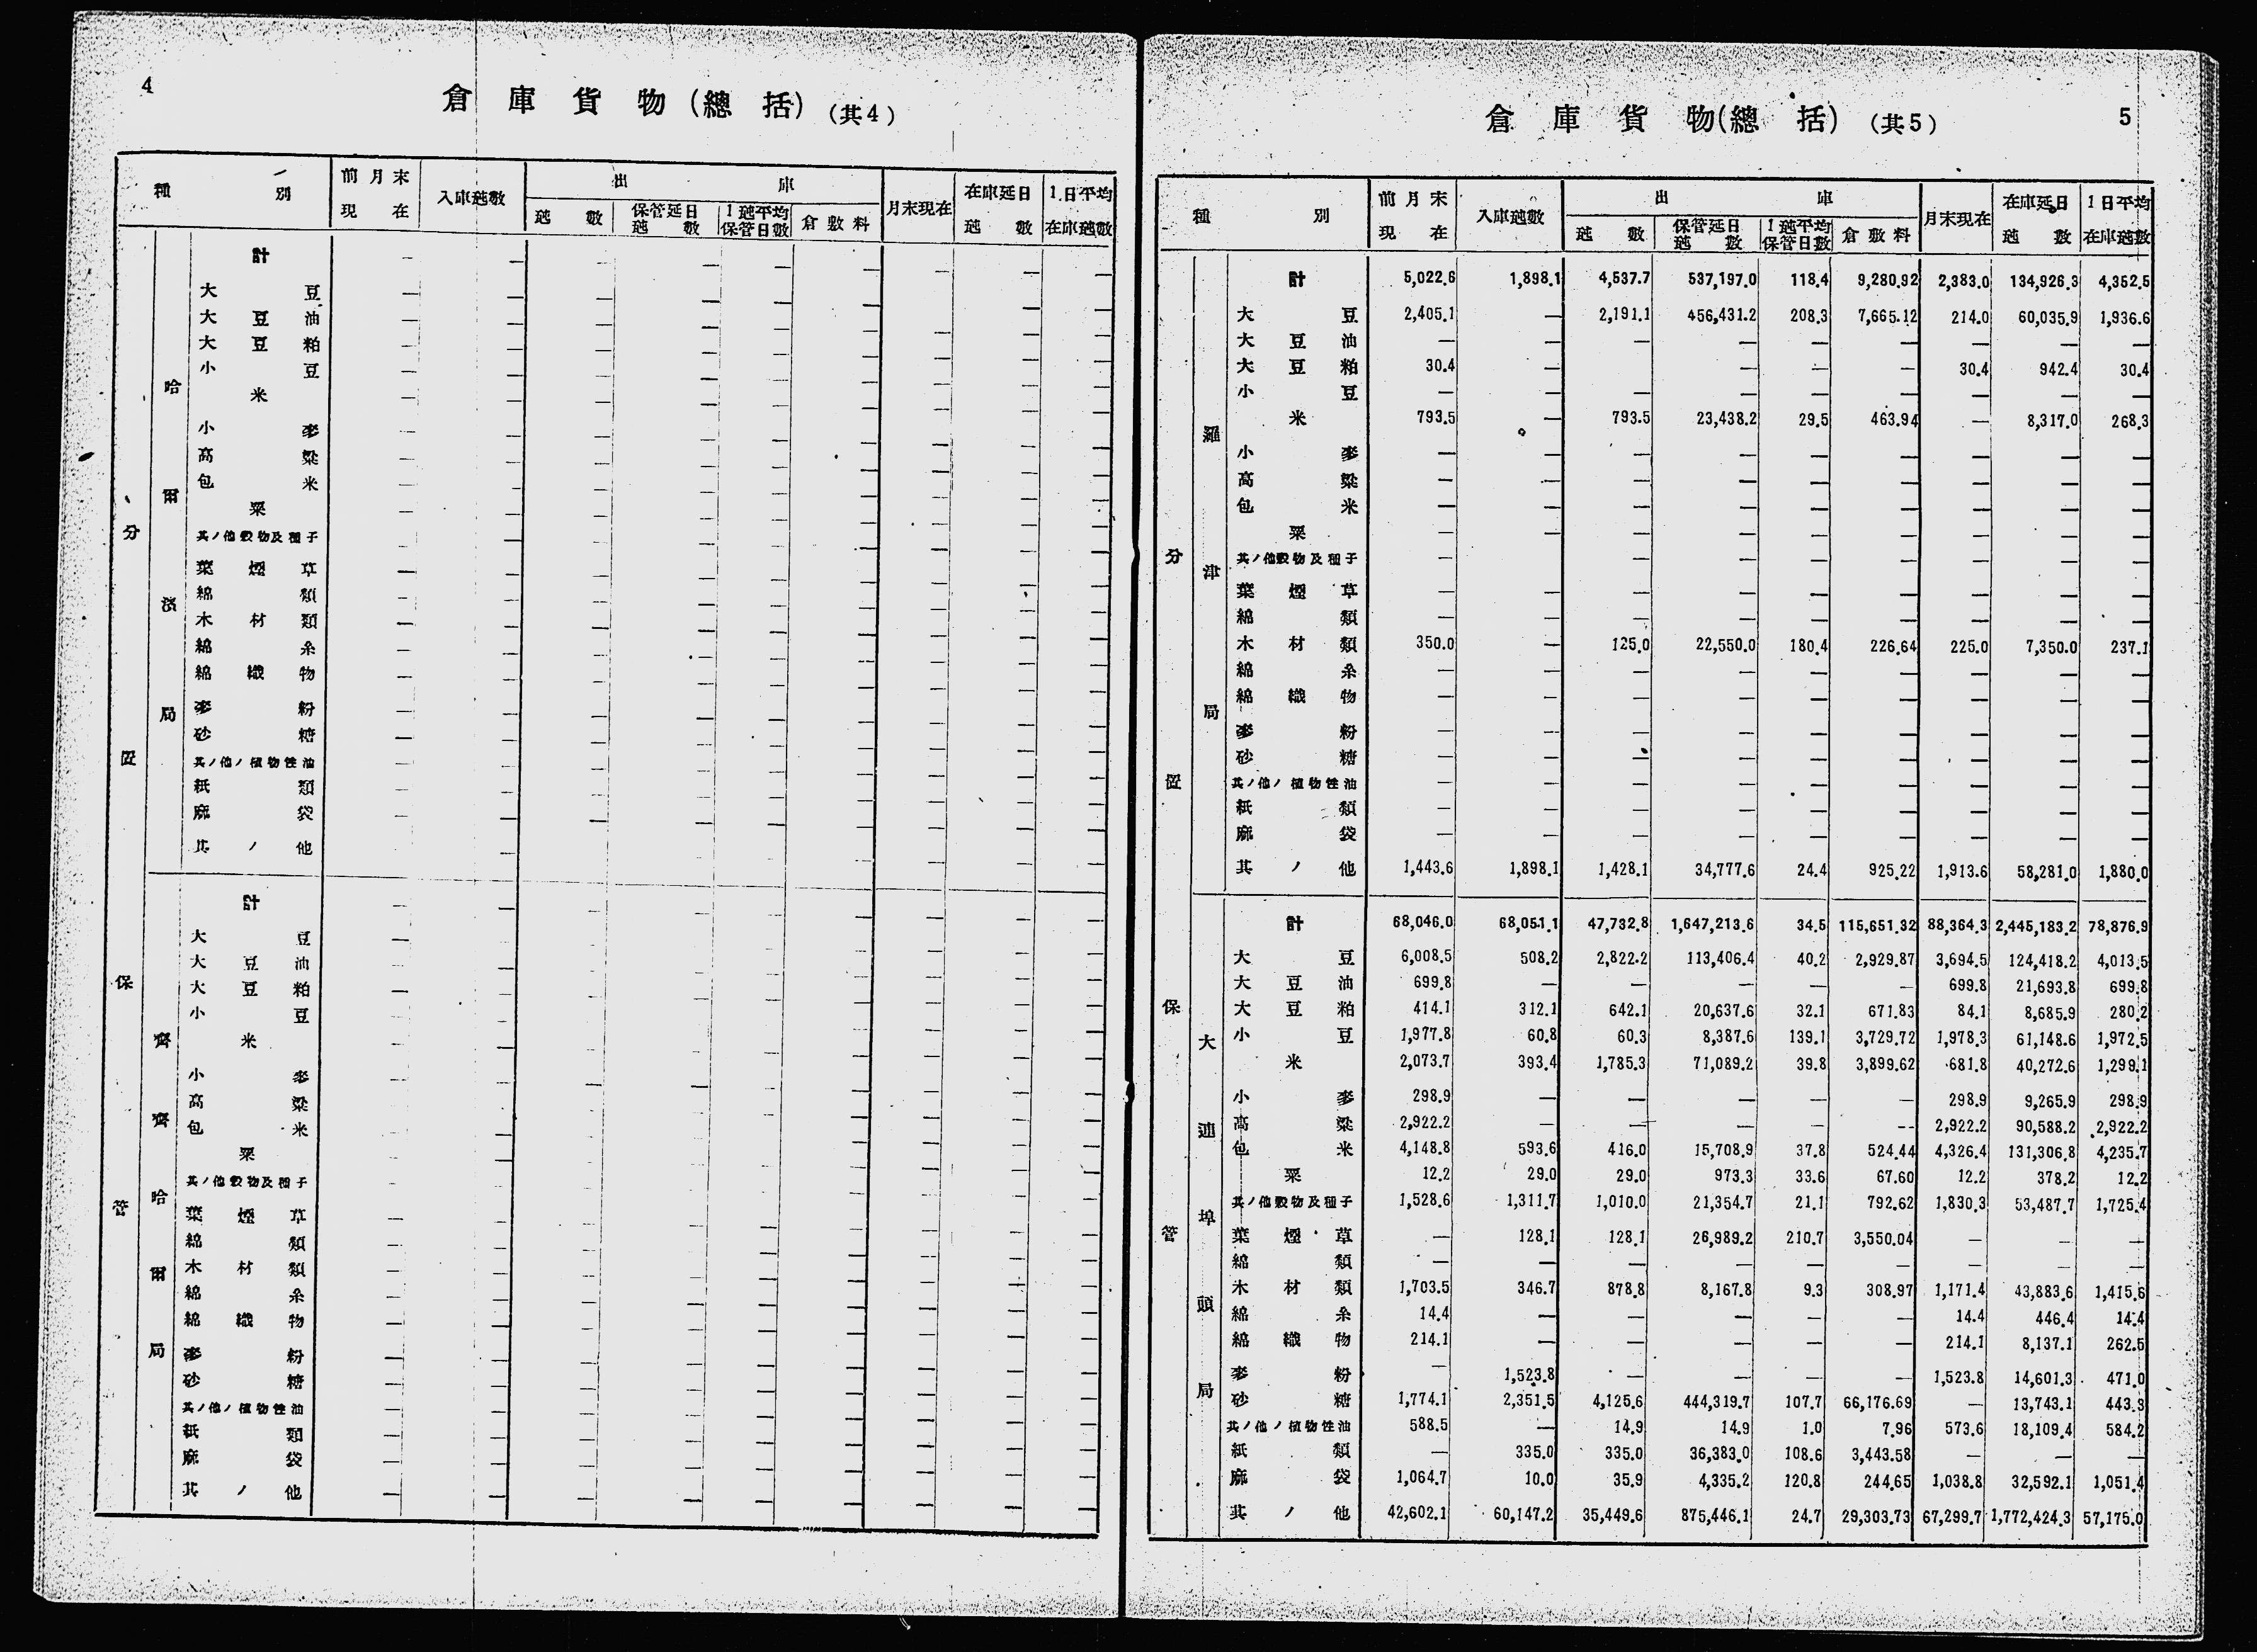 4
倉庫貨物(總括)(其4)
種別 前月末現在 入庫瓲數 出庫 月末現在 在庫延日瓲數 1日平均在庫瓲數
瓲數 保管延日瓲數 1瓲平均保管日數 倉敷料
分置保管
哈爾濱局
計 — — — — — — — — —
大豆 — — — — — — — — —
大豆油 — — — — — — — — —
大豆粕 — — — — — — — — —
小豆 — — — — — — — — —
米 — — — — — — — — —
小麥 — — — — — — — — —
高粱 — — — — — — — — —
包米 — — — — — — — — —
粟 — — — — — — — — —
其ノ他穀物及種子 — — — — — — — — —
葉煙草 — — — — — — — — —
綿類 — — — — — — — — —
木材類 — — — — — — — — —
綿糸 — — — — — — — — —
綿織物 — — — — — — — — —
麥粉 — — — — — — — — —
砂糖 — — — — — — — — —
其ノ他ノ植物性油 — — — — — — — — —
紙類 — — — — — — — — —
麻袋 — — — — — — — — —
其ノ他 — — — — — — — — —
齊齊哈爾局
計 — — — — — — — — —
大豆 — — — — — — — — —
大豆油 — — — — — — — — —
大豆粕 — — — — — — — — —
小豆 — — — — — — — — —
米 — — — — — — — — —
小麥 — — — — — — — — —
高粱 — — — — — — — — —
包米 — — — — — — — — —
粟 — — — — — — — — —
其ノ他穀物及種子 — — — — — — — — —
葉煙草 — — — — — — — — —
綿類 — — — — — — — — —
木材類 — — — — — — — — —
綿糸 — — — — — — — — —
綿織物 — — — — — — — — —
麥粉 — — — — — — — — —
砂糖 — — — — — — — — —
其ノ他ノ植物性油 — — — — — — — — —
紙類 — — — — — — — — —
麻袋 — — — — — — — — —
其ノ他 — — — — — — — — —
倉庫貨物(總括)(其5)
5
種別 前月末現在 入庫瓲數 出庫 月末現在 在庫延日瓲數 1日平均在庫瓲數
瓲數 保管延日瓲數 1瓲平均保管日數 倉敷料
分置保管
羅津局
計 5,022.6 1,898.1 4,537.7 537,197.0 118.4 9,280.92 2,383.0 134,926.3 4,352.5
大豆 2,405.1 — 2,191.1 456,431.2 208.3 7,665.12 214.0 60,035.9 1,936.6
大豆油 — — — — — — — — —
大豆粕 30.4 — — — — — 30.4 942.4 30.4
小豆 — — — — — — — — —
米 793.5 — 793.5 23,438.2 29.5 463.94 — 8,317.0 268.3
小麥 — — — — — — — — —
高粱 — — — — — — — — —
包米 — — — — — — — — —
粟 — — — — — — — — —
其ノ他穀物及種子 — — — — — — — — —
葉煙草 — — — — — — — — —
綿類 — — — — — — — — —
木材類 350.0 — 125.0 22,550.0 180.4 226.64 225.0 7,350.0 237.1
綿糸 — — — — — — — — —
綿織物 — — — — — — — — —
麥粉 — — — — — — — — —
砂糖 — — — — — — — — —
其ノ他ノ植物性油 — — — — — — — — —
紙類 — — — — — — — — —
麻袋 — — — — — — — — —
其ノ他 1,443.6 1,898.1 1,428.1 34,777.6 24.4 925.22 1,913.6 58,281.0 1,880.0
大連埠頭局
計 68,046.0 68,051.1 47,732.8 1,647,213.6 34.5 115,651.32 88,364.3 2,445,183.2 78,876.9
大豆 6,008.5 508.2 2,822.2 113,406.4 40.2 2,929.87 3,694.5 124,418.2 4,013.5
大豆油 699.8 — — — — — 699.8 21,693.8 699.8
大豆粕 414.1 312.1 642.1 20,637.6 32.1 671.83 84.1 8,685.9 280.2
小豆 1,977.8 60.8 60.3 8,387.6 139.1 3,729.72 1,978.3 61,148.6 1,972.5
米 2,073.7 393.4 1,785.3 71,089.2 39.8 3,899.62 681.8 40,272.6 1,299.1
小麥 298.9 — — — — — 298.9 9,265.9 298.9
高粱 2,922.2 — — — — — 2,922.2 90,588.2 2,922.2
包米 4,148.8 593.6 416.0 15,708.9 37.8 524.44 4,326.4 131,306.8 4,235.7
粟 12.2 29.0 29.0 973.3 33.6 67.60 12.2 378.2 12.2
其ノ他穀物及種子 1,528.6 1,311.7 1,010.0 21,354.7 21.1 792.62 1,830.3 53,487.7 1,725.4
葉煙草 — 128.1 128.1 26,989.2 210.7 3,550.04 — — —
綿類 — — — — — — — — —
木材類 1,703.5 346.7 878.8 8,167.8 9.3 308.97 1,171.4 43,883.6 1,415.6
綿糸 14.4 — — — — — 14.4 446.4 14.4
綿織物 214.1 — — — — — 214.1 8,137.1 262.5
麥粉 — 1,523.8 — — — — 1,523.8 14,601.3 471.0
砂糖 1,774.1 2,351.5 4,125.6 444,319.7 107.7 66,176.69 — 13,743.1 443.3
其ノ他ノ植物性油 588.5 — 14.9 14.9 1.0 7.96 573.6 18,109.4 584.2
紙類 — 335.0 335.0 36,383.0 108.6 3,443.58 — — —
麻袋 1,064.7 10.0 35.9 4,335.2 120.8 244.65 1,038.8 32,592.1 1,051.4
其ノ他 42,602.1 60,147.2 35,449.6 875,446.1 24.7 29,303.73 67,299.7 1,772,424.3 57,175.0